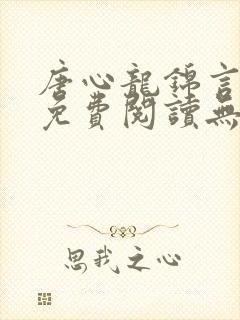 唐心龍錦言
免費閱讀無
思我之心